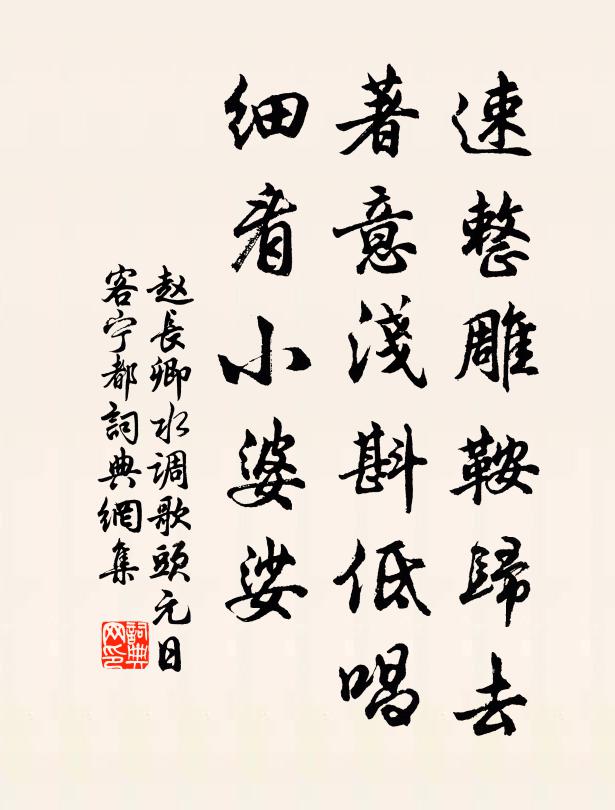 速整雕鞍歸去
著意淺斟低唱
细看小婆娑
赵長卿水调歌頭元日
客宁都詞典網集
詞典网印